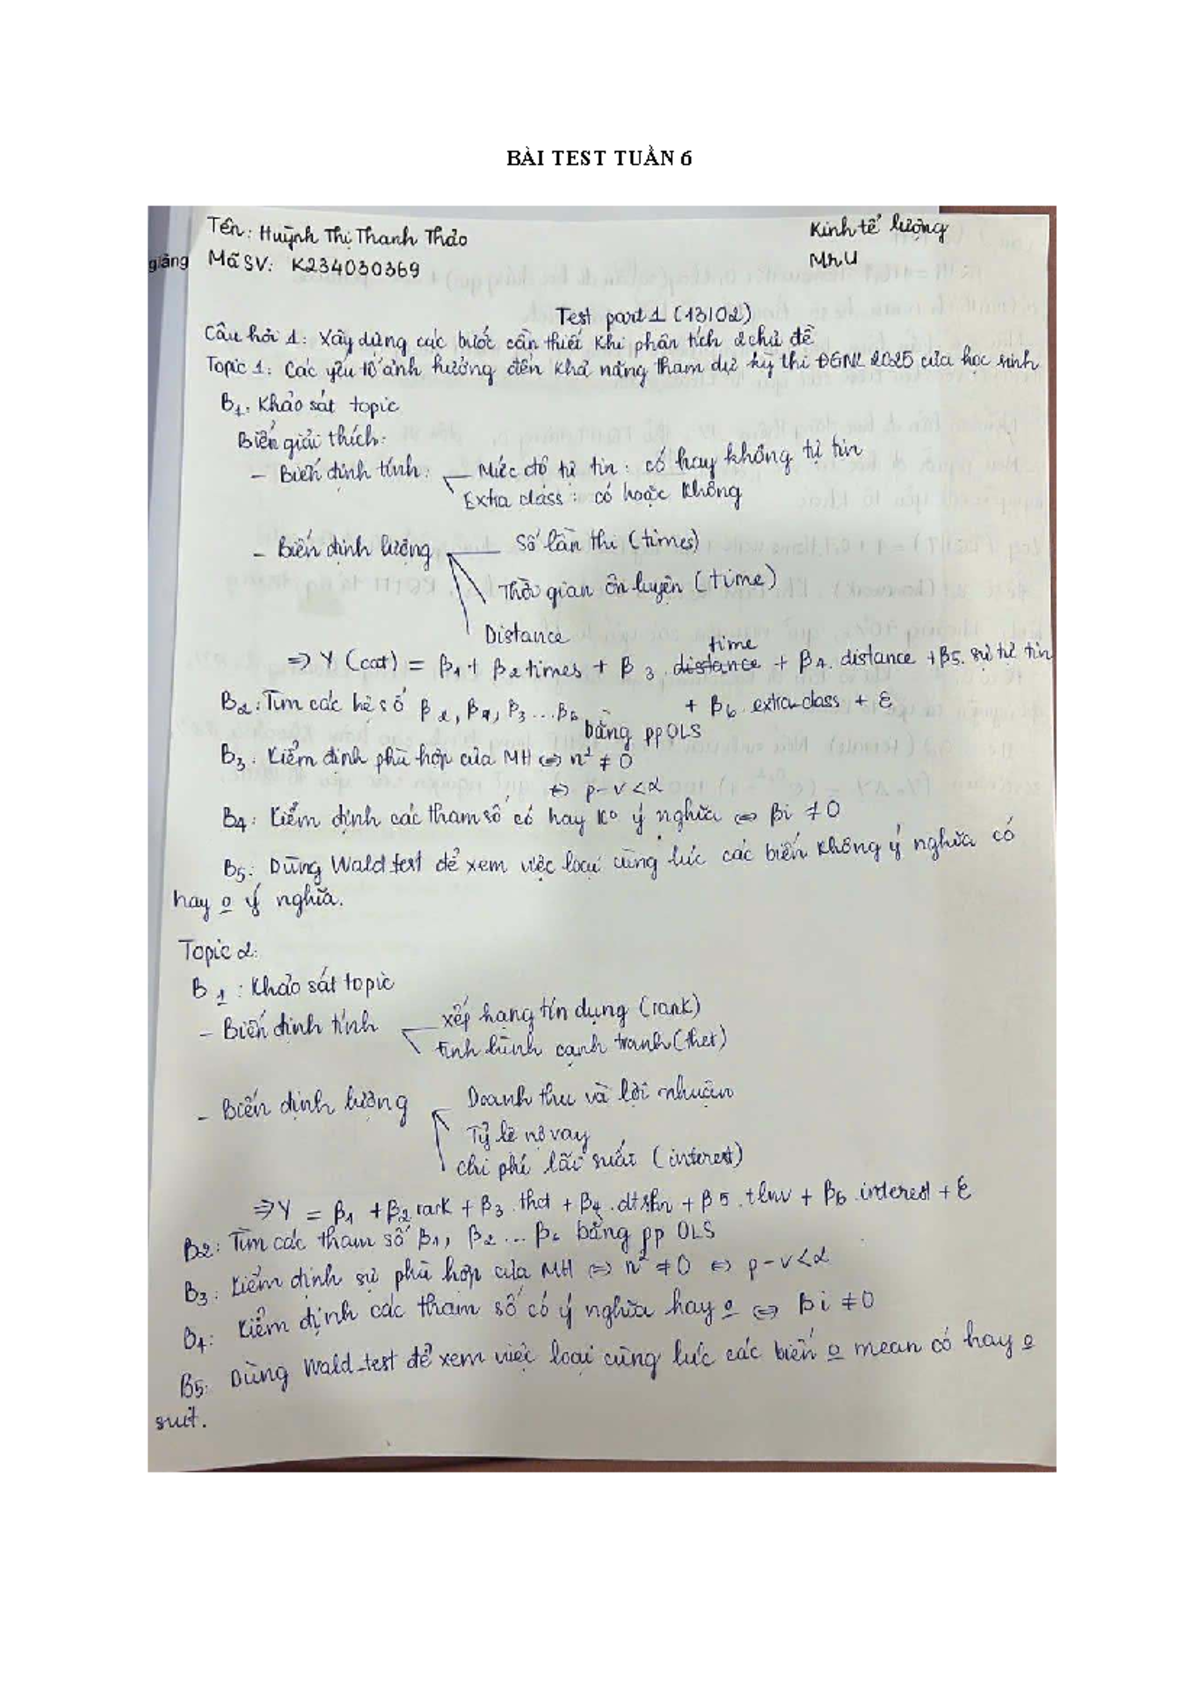 BÀI TEST TUẦN 6
Tên: Huỳnh Thị Thanh Thảo
Kinh tế lượng
giảng
Mã SV: K234030369
Mr.U
Test part 1 (13/02)
Câu hỏi 1: Xây dựng các bước cần thiết khi phân tích 2 chủ đề
Topic 1: Các yếu tố ảnh hưởng đến khả năng tham dự kỳ thi ĐGNL 2025 của học sinh
B1. Khảo sát topic
Biến giải thích:
- Biến định tính: Mức độ tự tin: có hay không tự tin
Extra class: có hoặc không
- Biến định lượng Số lần thi (times)
Thời gian ôn luyện (time)
Distance
time
=> Y (cat) = β1 + β2 times + β3. distance + β4. distance + β5. sự tự tin
+ β6. extra-class + ε
B2: Tìm các hệ số β2, β4, β3...β6
bằng pp OLS
B3: Kiểm định phù hợp của MH <=> r² ≠ 0
<=> p-v < α
B4: Kiểm định các tham số có hay ko ý nghĩa <=> βi ≠ 0
B5: Dùng Wald_test để xem việc loại cùng lúc các biến không ý nghĩa có
hay o ý nghĩa.
Topic 2:
B1: Khảo sát topic
- Biến định tính xếp hạng tín dụng (rank)
tình hình cạnh tranh (thct)
- Biến định lượng Doanh thu và lợi nhuận
Tỷ lệ nợ vay
chi phí lãi suất (interest)
=> Y = β1 + β2 rank + β3. thct + β4. dt + β5. tlnv + β6. interest + ε
B2: Tìm các tham số β1, β2 ... β6 bằng pp OLS
B3: Kiểm định sự phù hợp của MH <=> r² ≠ 0 <=> p-v < α
B4: Kiểm định các tham số có ý nghĩa hay o <=> βi ≠ 0
B5: Dùng Wald_test để xem việc loại cùng lúc các biến o mean có hay o
suit.